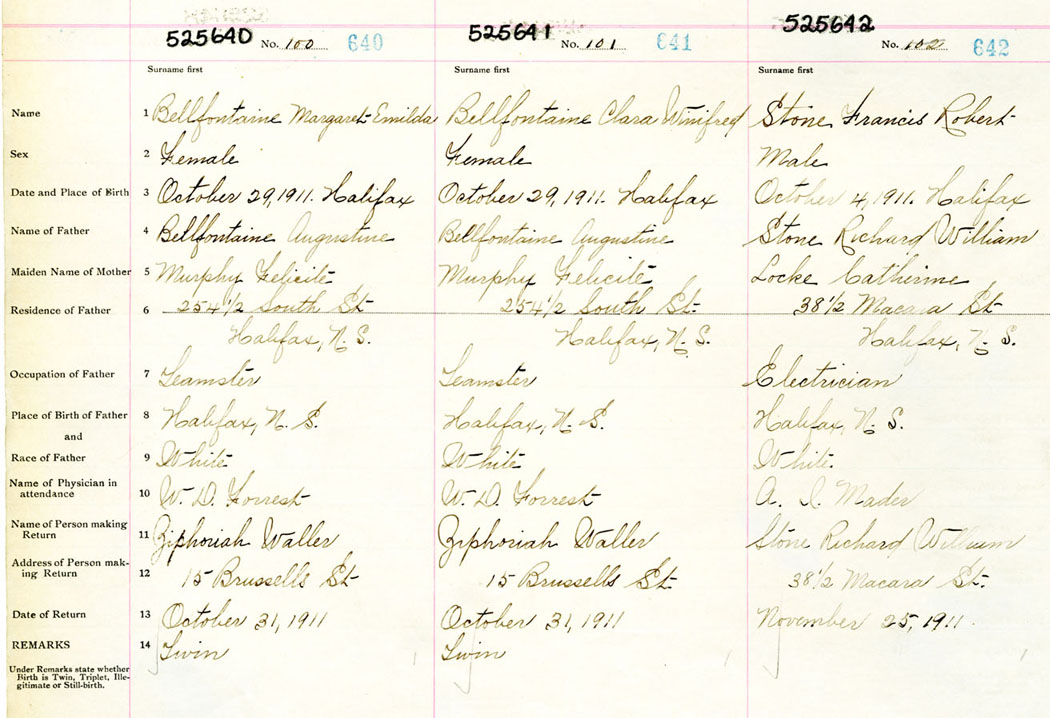 525640 No. 100 640 525641 No. 101 641 525642 No. 102 642
Surname first Surname first Surname first
Name 1 Bellfontaine Margaret Emilda Bellfontaine Clara Winifred Stone Francis Robert
Sex 2 Female Female Male
Date and Place of Birth 3 October 29, 1911. Halifax October 29, 1911. Halifax October 4, 1911. Halifax
Name of Father 4 Bellfontaine Augustine Bellfontaine Augustine Stone Richard William
Maiden Name of Mother 5 Murphy Felicité Murphy Felicité Locke Catherine
Residence of Father 6 254 1/2 South St. 254 1/2 South St. 38 1/2 Macara St.
Halifax, N. S. Halifax, N. S. Halifax, N. S.
Occupation of Father 7 Teamster Teamster Electrician
Place of Birth of Father 8 Halifax, N. S. Halifax, N. S. Halifax, N. S.
and
Race of Father 9 White White White.
Name of Physician in
attendance 10 W. D. Forrest W. D. Forrest A. I. Mader
Name of Person making
Return 11 Ziphoriah Waller Ziphoriah Waller Stone Richard William
Address of Person mak-
ing Return 12 15 Brussells St. 15 Brussells St. 38 1/2 Macara St.
Date of Return 13 October 31, 1911 October 31, 1911 November 25, 1911.
REMARKS 14 Twin Twin
Under Remarks state whether
Birth is Twin, Triplet, Ille-
gitimate or Still-birth.